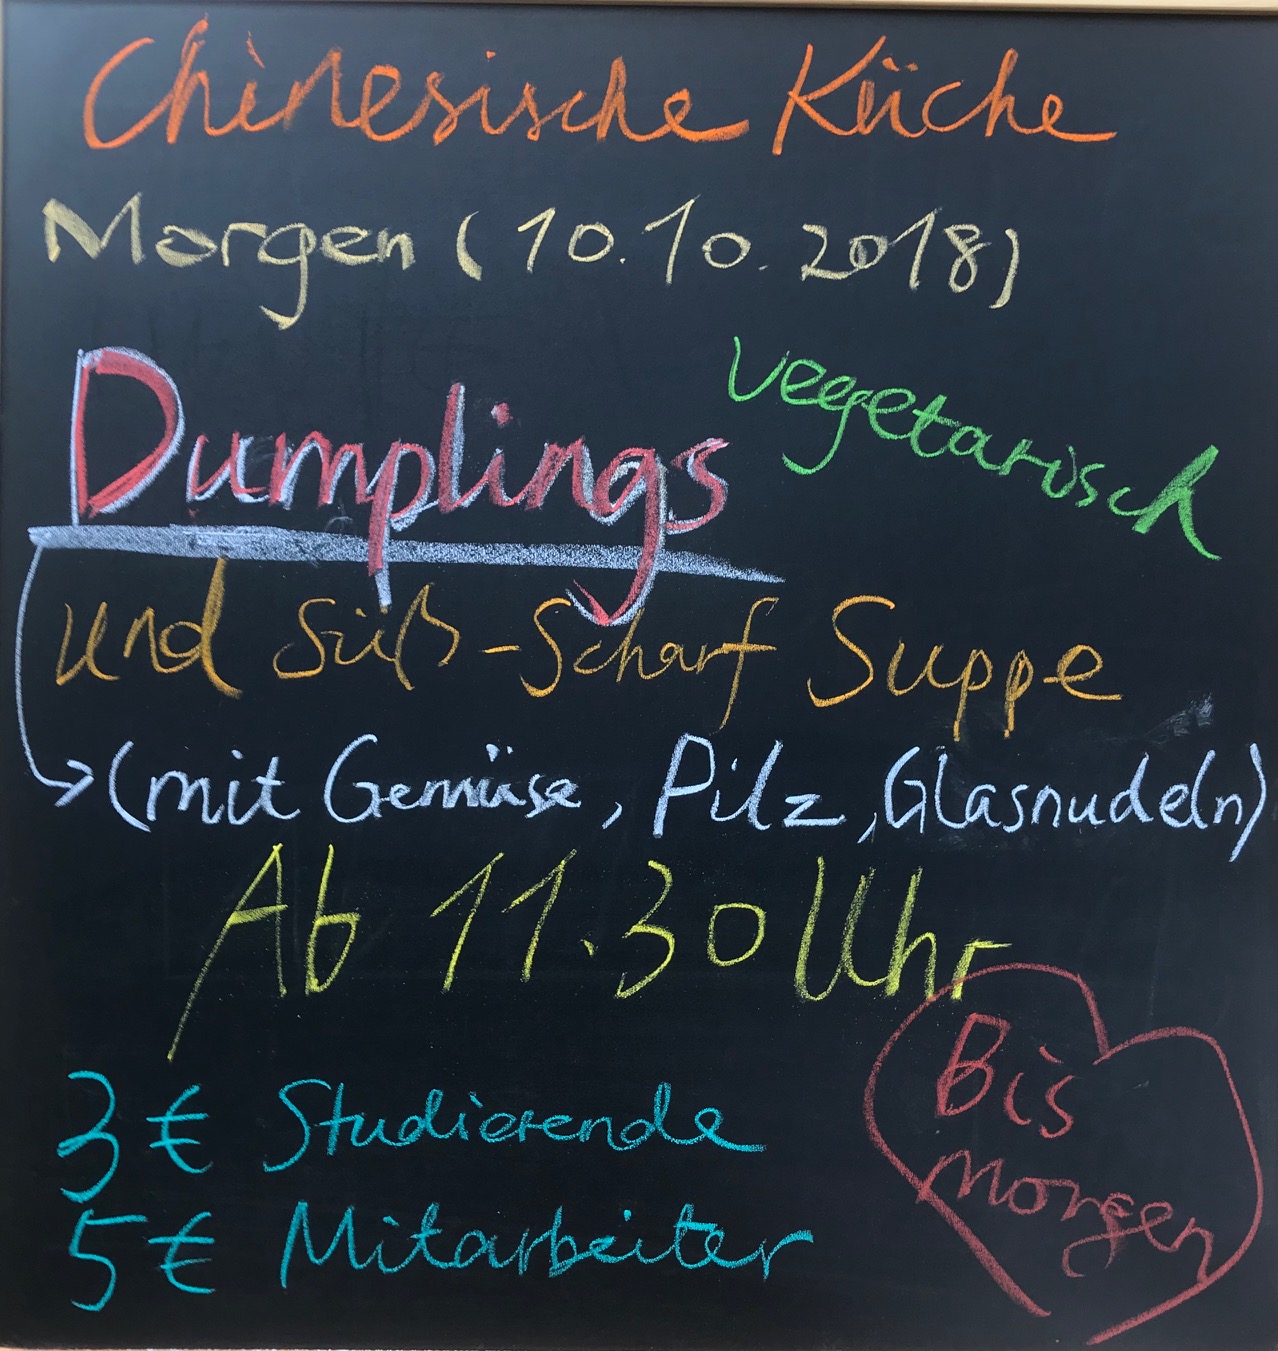 Chinesische Küche
Morgen (10.10.2018)
Dumplings
vegetarisch
und süß-Scharf Suppe
(mit Gemüse, Pilz, Glasnudeln)
Ab 11.30 Uhr
Bis
morgen
3€ Studierende
5€ Mitarbeiter